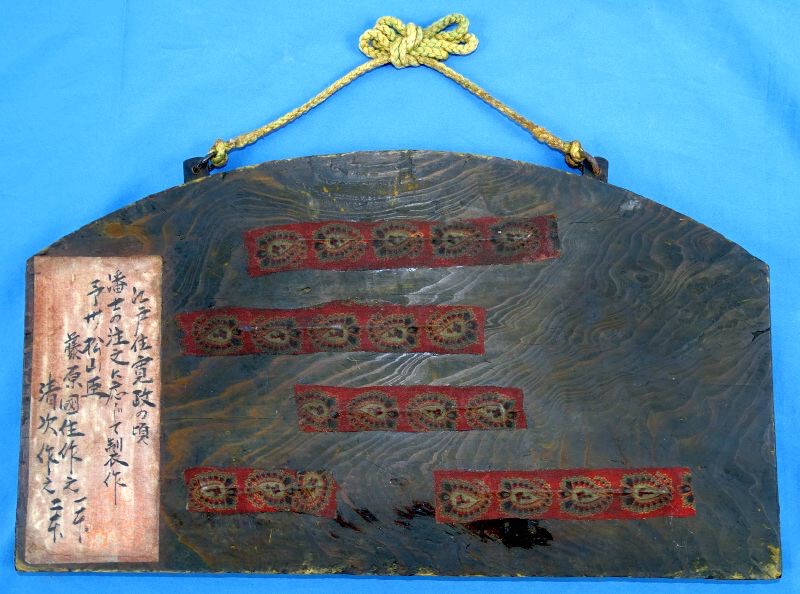 江戸住寛政の頃
藩士の注文に応じて製作
予州松山臣
藤原國住作之一本
清次作之二本